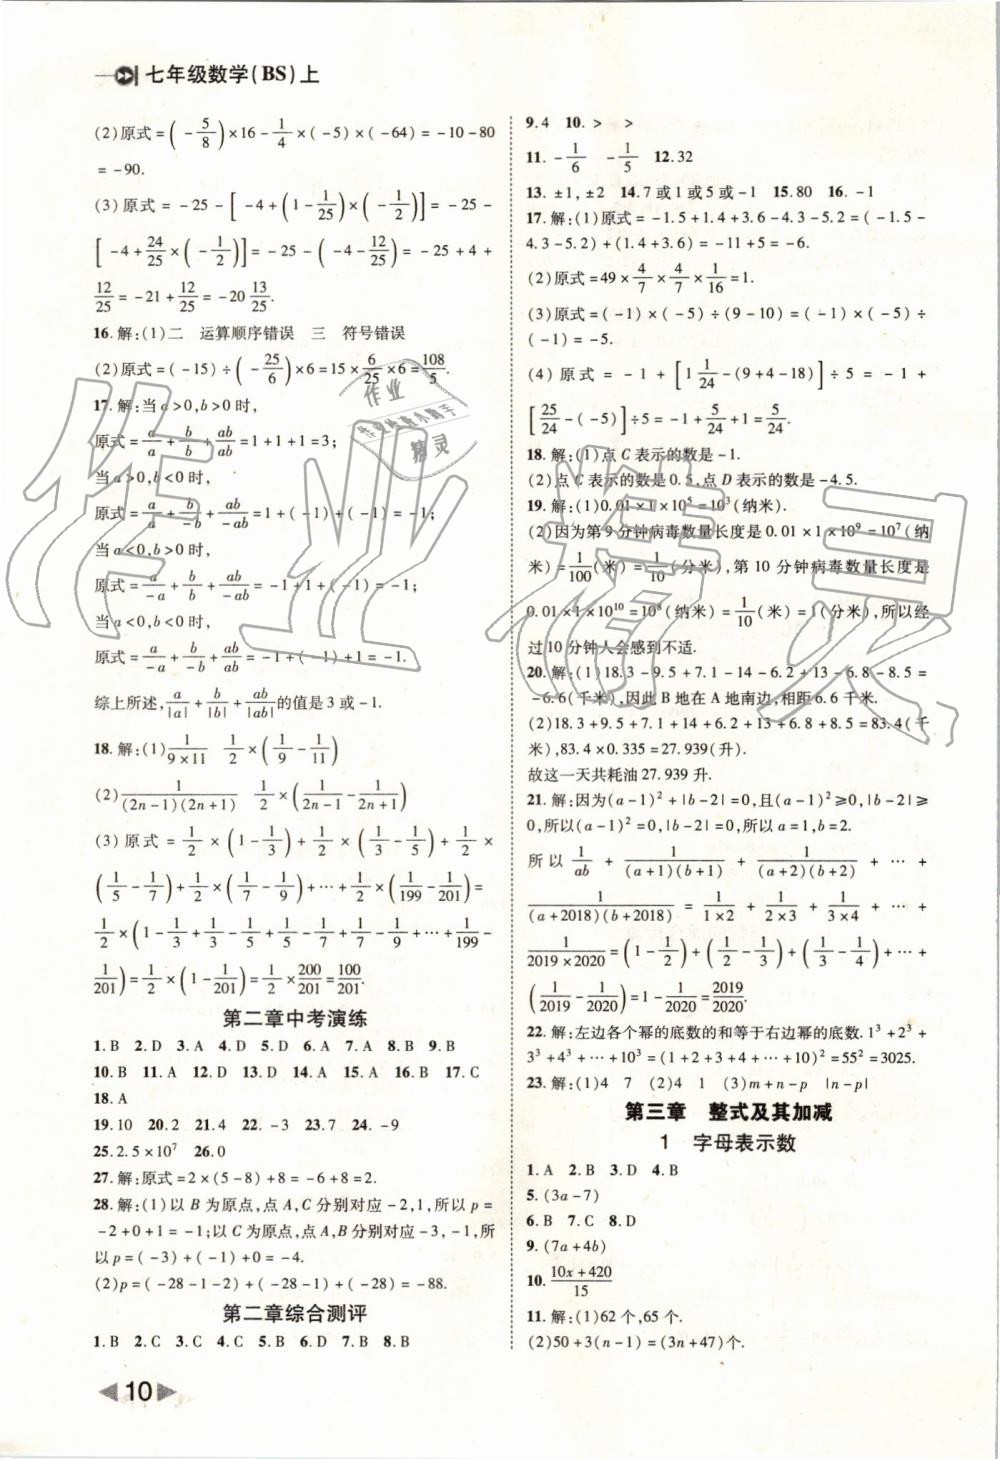 七年级数学(BS)上
(2)原式=(-5/8)×16-1/4×(-5)×(-64)=-10-80
=-90.
(3)原式=-25-[-4+(1-1/25)×(-1/2)]=-25-
[-4+24/25×(-1/2)]=-25-(-4-12/25)=-25+4+
12/25=-21+12/25=-20 13/25.
16.解:(1)二 运算顺序错误 三 符号错误
(2)原式=(-15)÷(-25/6)×6=15×6/25×6=108/5.
17.解:当a>0,b>0时,
原式=a/a+b/b+ab/ab=1+1+1=3;
当a>0,b<0时,
原式=a/a+b/-b+ab/-ab=1+(-1)+(-1)=-1;
当a<0,b>0时,
原式=a/-a+b/b+ab/-ab=-1+1+(-1)=-1;
当a<0,b<0时,
原式=a/-a+b/-b+ab/ab=-1+(-1)+1=-1.
综上所述,a/|a|+b/|b|+ab/|ab|的值是3或-1.
18.解:(1)1/(9×11) 1/2×(1/9-1/11)
(2)1/((2n-1)(2n+1)) 1/2×(1/(2n-1)-1/(2n+1))
(3)原式=1/2×(1-1/3)+1/2×(1/3-1/5)+1/2×
(1/5-1/7)+1/2×(1/7-1/9)+…+1/2×(1/199-1/201)=
1/2×(1-1/3+1/3-1/5+1/5-1/7+1/7-1/9+…+1/199-
1/201)=1/2×(1-1/201)=1/2×200/201=100/201.
第二章中考演练
1.B 2.D 3.A 4.D 5.D 6.A 7.D 8.B 9.B
10.B 11.A 12.D 13.D 14.A 15.A 16.B 17.C
18.A
19.10 20.2 21.4 22.-3 23.7 24.-9
25.2.5×10⁷ 26.0
27.解:原式=2×(5-8)+8=-6+8=2.
28.解:(1)以B为原点,点A,C分别对应-2,1,所以p=
-2+0+1=-1;以C为原点,点A,B分别对应-3,-1,所
以p=(-3)+(-1)+0=-4.
(2)p=(-28-1-2)+(-28-1)+(-28)=-88.
第二章综合测评
1.B 2.C 3.C 4.C 5.B 6.D 7.B 8.B
9.4 10.> >
11.-1/6 -1/5 12.32
13.±1,±2 14.7或1或5或-1 15.80 16.-1
17.解:(1)原式=-1.5+1.4+3.6-4.3-5.2=(-1.5-
4.3-5.2)+(1.4+3.6)=-11+5=-6.
(2)原式=49×4/7×4/7×1/16=1.
(3)原式=(-1)×(-5)÷(9-10)=(-1)×(-5)÷
(-1)=-5.
(4)原式=-1+[1 1/24-(9+4-18)]÷5=-1+
[25/24-(-5)]÷5=-1+5/24+1=5/24.
18.解:(1)点C表示的数是-1.
(2)点C表示的数是0.5,点D表示的数是-4.5.
19.解:(1)0.01×1×10⁵=10³(纳米).
(2)因为第9分钟病毒数量长度是0.01×1×10⁹=10⁷(纳
米)=1/100(米)=1/10(分米),第10分钟病毒数量长度是
0.01×1×10¹⁰=10⁸(纳米)=1/10(米)=1(分米),所以经
过10分钟人会感到不适.
20.解:(1)18.3-9.5+7.1-14-6.2+13-6.8-8.5=
-6.6(千米),因此B地在A地南边,相距6.6千米.
(2)18.3+9.5+7.1+14+6.2+13+6.8+8.5=83.4(千
米),83.4×0.335=27.939(升).
故这一天共耗油27.939升.
21.解:因为(a-1)²+|b-2|=0,且(a-1)²≥0,|b-2|≥
0,所以(a-1)²=0,|b-2|=0,所以a=1,b=2.
所以1/ab+1/((a+1)(b+1))+1/((a+2)(b+2))+…+
1/((a+2018)(b+2018))=1/(1×2)+1/(2×3)+1/(3×4)+…+
1/(2019×2020)=(1-1/2)+(1/2-1/3)+(1/3-1/4)+…+
(1/2019-1/2020)=1-1/2020=2019/2020.
22.解:左边各个幂的底数的和等于右边幂的底数.1³+2³+
3³+4³+…+10³=(1+2+3+4+…+10)²=55²=3025.
23.解:(1)4 7 (2)4 1 (3)m+n-p |n-p|
第三章 整式及其加减
1 字母表示数
1.A 2.B 3.D 4.B
5.(3a-7)
6.B 7.C 8.D
9.(7a+4b)
10.(10x+420)/15
11.解:(1)62个,65个.
(2)50+3(n-1)=(3n+47)个.
10
作业精灵
作业
作业检查小助手
精灵